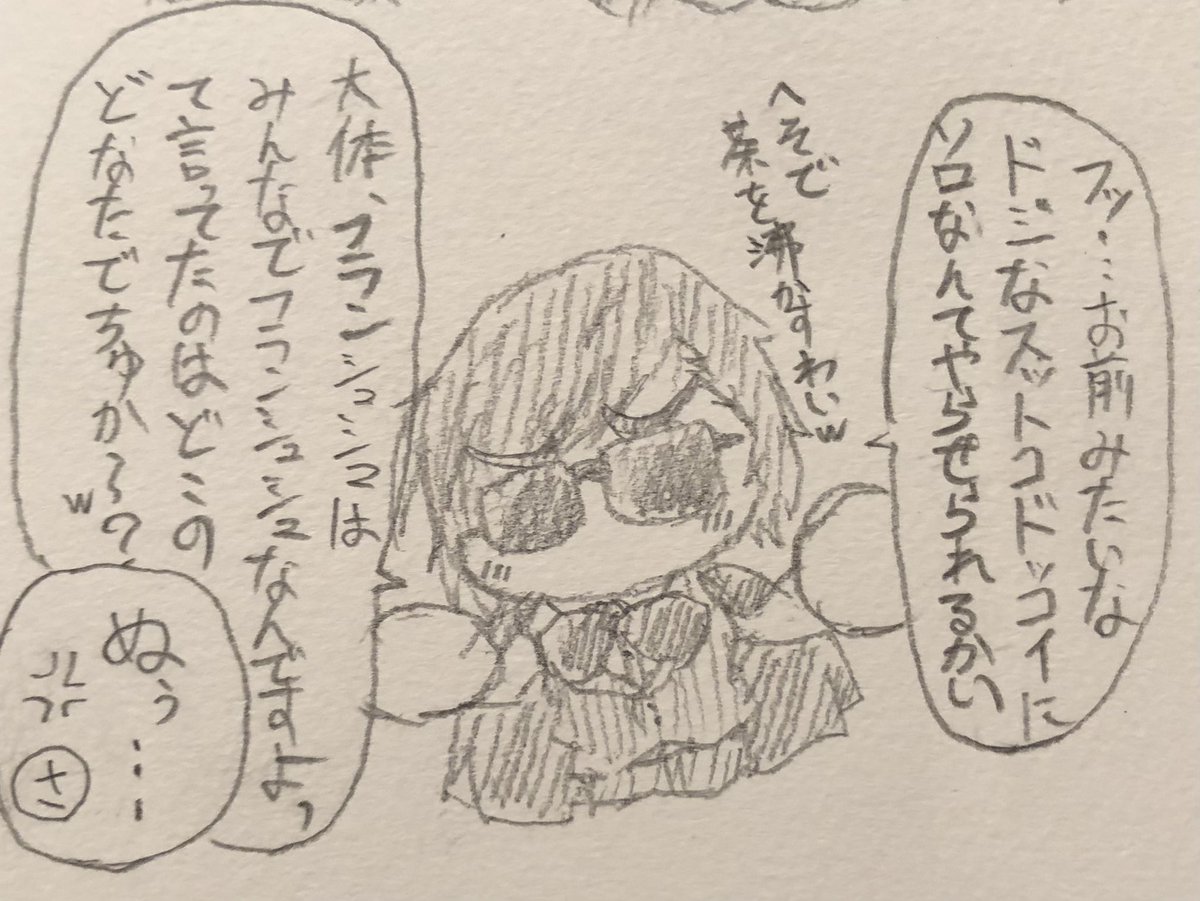 フッ…お前みたいな
ドジなスットコドッコイに
ソロなんてやらせられるかい
へそで
茶を沸かすわいw
大体、フランシュシュは
みんなでフランシュシュなんですよっ
て言ってたのはどこの
どなたでちゅか〜?w
ぬぅ…
サ